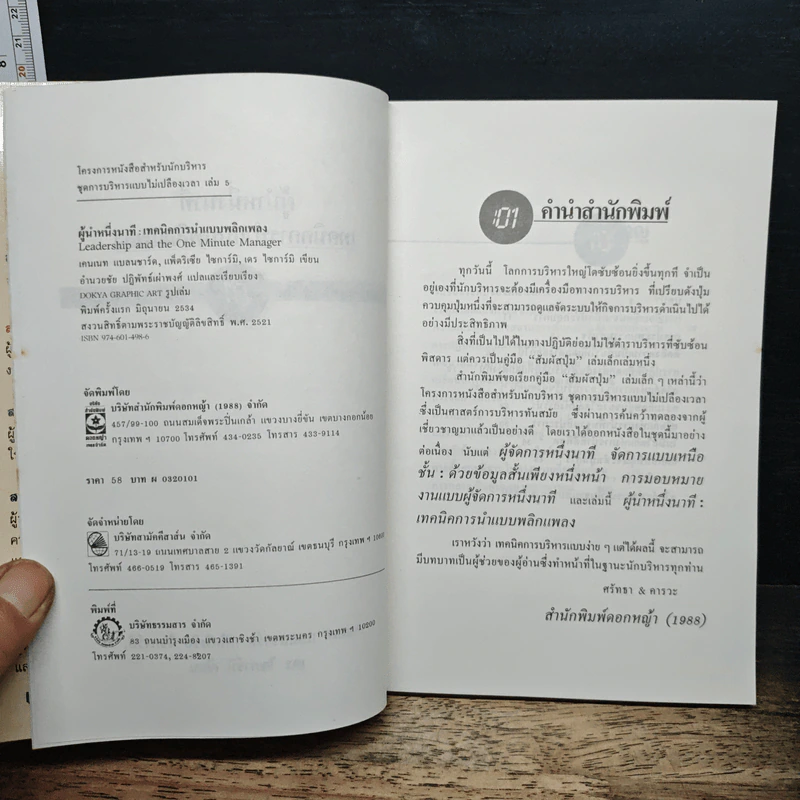 โครงการหนังสือสำหรับนักบริหาร
ชุดการบริหารแบบไม่เปลืองเวลา เล่ม 5
ผู้นำหนึ่งนาที : เทคนิคการนำแบบพลิกเพลง
Leadership and the One Minute Manager
เคนเนท แบลนชาร์ด, แพ็ตริเซีย ไซการ์มิ, เดร ไซการ์มิ เขียน
อำนวยชัย ปฏิพัทธ์เผ่าพงศ์ แปลและเรียบเรียง
DOKYA GRAPHIC ART รูปเล่ม
พิมพ์ครั้งแรก มิถุนายน 2534
สงวนสิทธิ์ตามพระราชบัญญัติลิขสิทธิ์ พ.ศ. 2521
ISBN 974-601-498-6
จัดพิมพ์โดย
บริษัทสำนักพิมพ์ดอกหญ้า (1988) จำกัด
457/99-100 ถนนสมเด็จพระปิ่นเกล้า แขวงบางยี่ขัน เขตบางกอกน้อย
กรุงเทพ ฯ 10700 โทรศัพท์ 434-0235 โทรสาร 433-9114
ราคา 58 บาท ผ 0320101
จัดจำหน่ายโดย
บริษัทสามัคคีสาส์น จำกัด
71/13-19 ถนนเทศบาลสาย 2 แขวงวัดกัลยาณ์ เขตธนบุรี กรุงเทพ ฯ 10600
โทรศัพท์ 466-0519 โทรสาร 465-1391
พิมพ์ที่
บริษัทธรรมสาร จำกัด
83 ถนนบำรุงเมือง แขวงเสาชิงช้า เขตพระนคร กรุงเทพ ฯ 10200
โทรศัพท์ 221-0374, 224-8207
01 คำนำสำนักพิมพ์
ทุกวันนี้ โลกการบริหารใหญ่โตซับซ้อนยิ่งขึ้นทุกที จำเป็น
อยู่เองที่นักบริหารจะต้องมีเครื่องมือทางการบริหาร ที่เปรียบดังปุ่ม
ควบคุมปุ่มหนึ่งที่จะสามารถดูแลจัดระบบให้กิจการบริหารดำเนินไปได้
อย่างมีประสิทธิภาพ
สิ่งที่เป็นไปได้ในทางปฏิบัติย่อมไม่ใช่ตำราบริหารที่ซับซ้อน
พิสดาร แต่ควรเป็นคู่มือ “สัมผัสปุ่ม” เล่มเล็กเล่มหนึ่ง
สำนักพิมพ์ขอเรียกคู่มือ “สัมผัสปุ่ม” เล่มเล็ก ๆ เหล่านี้ว่า
โครงการหนังสือสำหรับนักบริหาร ชุดการบริหารแบบไม่เปลืองเวลา
ซึ่งเป็นศาสตร์การบริหารทันสมัย ซึ่งผ่านการค้นคว้าทดลองจากผู้
เชี่ยวชาญมาแล้วเป็นอย่างดี โดยเราได้ออกหนังสือในชุดนี้มาอย่าง
ต่อเนื่อง นับแต่ ผู้จัดการหนึ่งนาที จัดการแบบเหนือ
ชั้น : ด้วยข้อมูลสั้นเพียงหนึ่งหน้า การมอบหมาย
งานแบบผู้จัดการหนึ่งนาที และเล่มนี้ ผู้นำหนึ่งนาที :
เทคนิคการนำแบบพลิกเพลง
เราหวังว่า เทคนิคการบริหารแบบง่าย ๆ แต่ได้ผลนี้ จะสามารถ
มีบทบาทเป็นผู้ช่วยของผู้อ่านซึ่งทำหน้าที่ในฐานะนักบริหารทุกท่าน
ศรัทธา & คารวะ
สำนักพิมพ์ดอกหญ้า (1988)